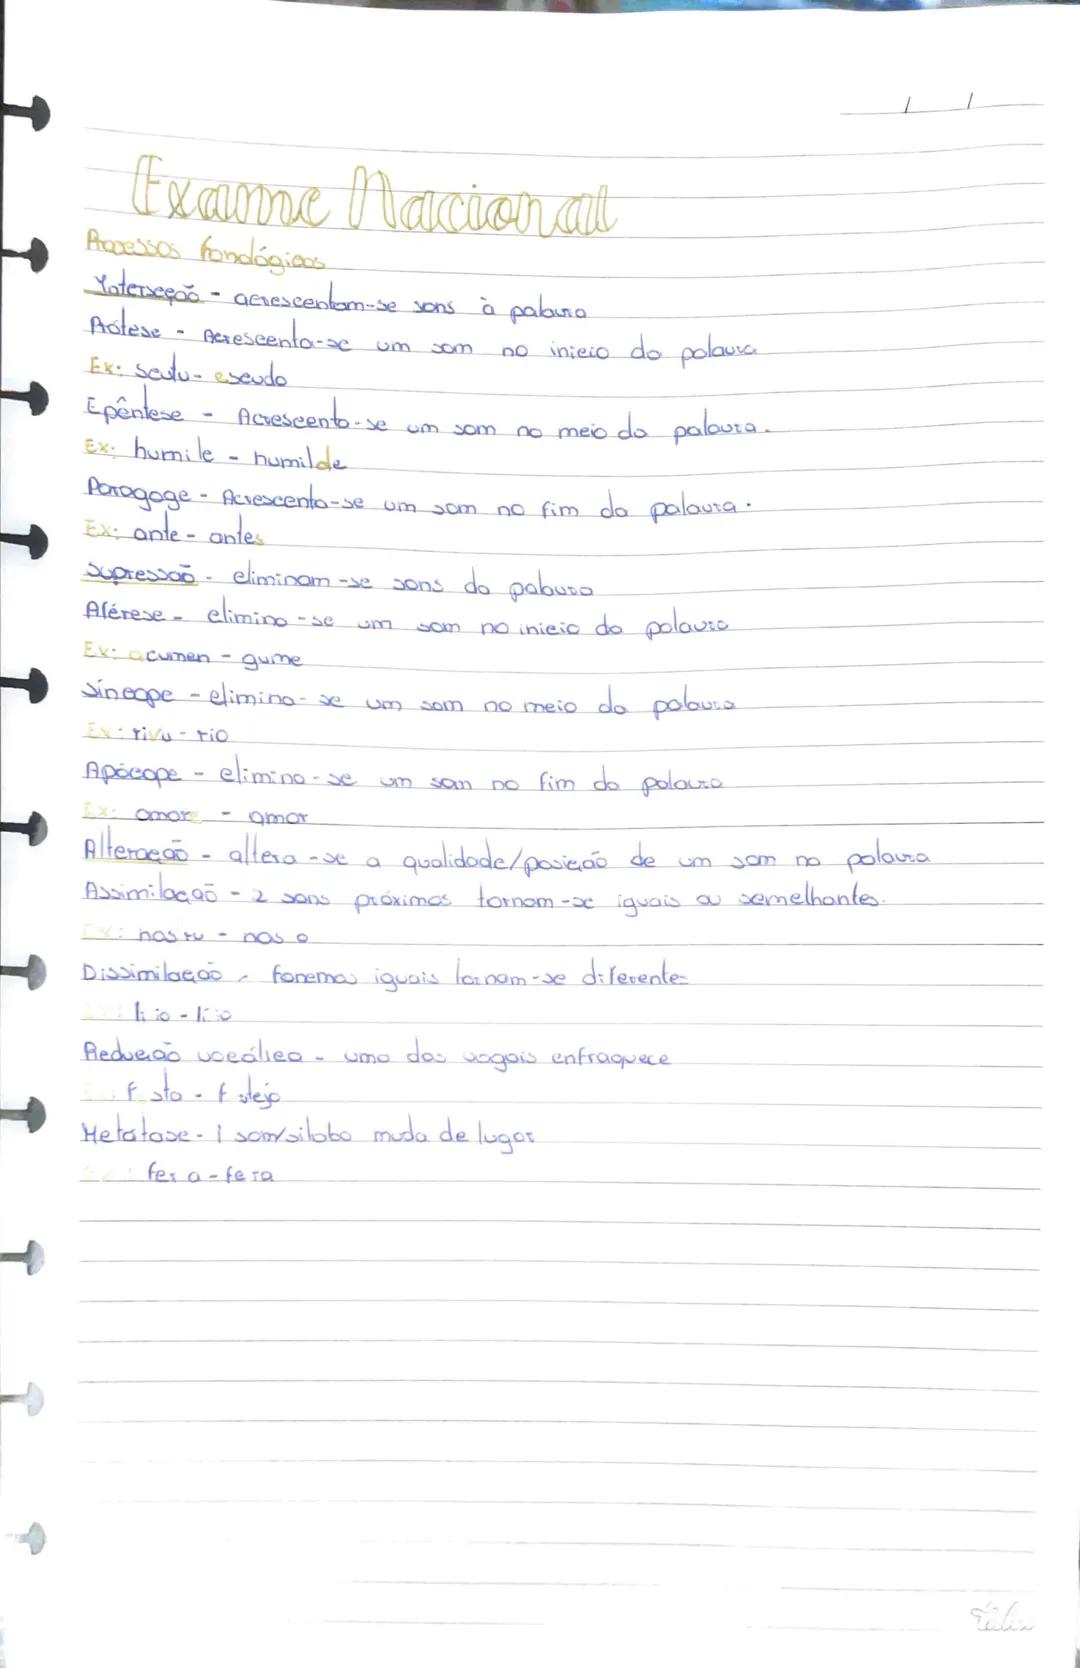 Exame Nacional
Processos fonológicos
Interseção - acrescentam-se sons à palavra
Prótese - Acrescenta-se um som no inicio da palavra
Ex: scutu - escudo
Epêntese - Acrescenta-se um som no meio da palavra.
Ex: humile - humilde
Paragoge - Acrescenta-se um som no fim da palavra.
Ex: ante - antes
Supressão - eliminam-se sons da palavra
Aférese - elimina-se um som no inicio da palavra
Ex: acumen - gume
Síncope - elimina-se um som no meio da palavra
Ex: rivu - rio
Apócope - elimina-se um som no fim da palavra
Ex: amore - amor
Alteração - altera-se a qualidade/posição de um som na palavra
Assimilação - 2 sons próximos tornam-se iguais ou semelhantes.
Ex: nos o
Dissimilação - fonemas iguais tornam-se diferentes
Redução vocálica - uma das vogais enfraquece
Metatase - 1 som/silaba muda de lugar